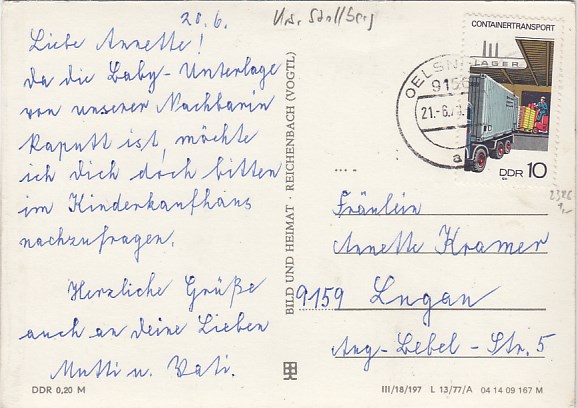 20.6.
Liebe Annette!
Da die Baby-Unterlage
von unserer Nachbarin
kaputt ist, möchte
ich dich doch bitten
im Kinderkaufhaus
nachzufragen.
Herzliche Grüße
auch an deine Lieben
Mutti u. Vati.
DDR 0,20 M
BILD UND HEIMAT · REICHENBACH (VOGTL)
CONTAINERTRANSPORT
LAGER
DDR 10
OELSN
9156
21.-6.7
a
Fräulein
Annette Kramer
9159 Lugau
Aug-Bebel-Str. 5
III/18/197 L 13/77/A 04 14 09 167 M